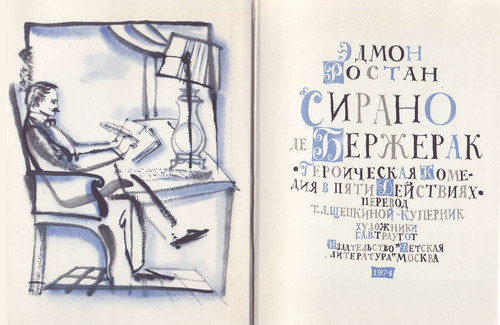 ЭДМОН
РОСТАН
СИРАНО
ДЕ БЕРЖЕРАК
• ГЕРОИЧЕСКАЯ КОМЕ-
ДИЯ В ПЯТИ ДЕЙСТВИЯХ •
ПЕРЕВОД
Т.Л.ЩЕПКИНОЙ-КУПЕРНИК
ХУДОЖНИКИ
Г.А.В.ТРАУГОТ
ИЗДАТЕЛЬСТВО "ДЕТСКАЯ
ЛИТЕРАТУРА" МОСКВА
1974